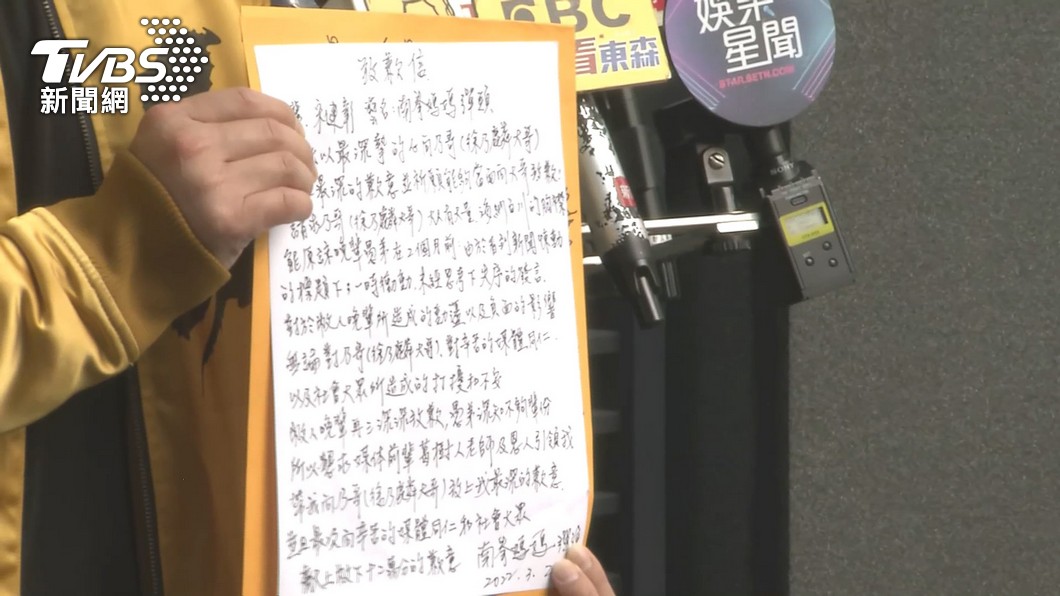 TVBS
新聞網
EBC
看東森
娛樂
星聞
STAR.SETN.COM
SONY
致歉信
宋健彰 藝名:南拳媽媽彈頭
以最深摯的心向乃哥(徐乃麟大哥)
最深的歉意並祈願能夠當面向大哥致歉:
請求乃哥(徐乃麟大哥)大人有大量 海納百川的胸襟
能原諒晚輩愚弟在2個月前 由於看到新聞聳動
的標題下:一時衝動 未經思考下失序的發言.
對於敝人晚輩所造成的動盪以及負面的影響
無論對乃哥(徐乃麟大哥).對辛苦的媒體同仁.
以及社會大眾所造成的打擾和不安
敝人晚輩再三深深致歉,愚弟深知不夠輩份
所以懇求媒體前輩葛樹人老師及恩人引領我
帶我向乃哥(徐乃麟大哥)致上我最深的歉意.
並且最後向辛苦的媒體同仁和社會大眾
獻上敝下十二萬分的歉意 南拳媽媽 彈頭
2022.3.2